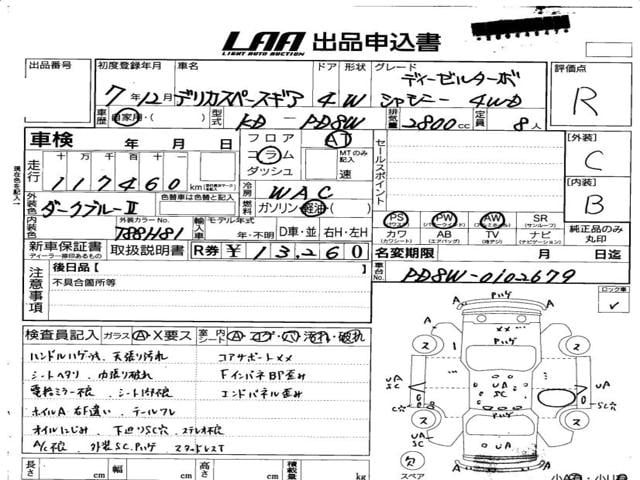 LAA 出品申込書
LIGHT AUTO AUCTION
出品番号
初度登録年月 車名 ドア 形状 グレード 評価点
7年12月 デリカスペースギア 4 W ディーゼルターボ
シャモニー 4WD
R
車歴 自家用・( ) 型式 KD-PD8W 排気量 2800cc 定員 8人
車検 年 月 日
フロア AT
コラム MTのみ記入
ダッシュ 速
セールスポイント
[外装]
C
[内装]
B
走行 十 万 千 百 十 一
117460 km
冷房 WAC
燃料 ガソリン・軽油・( )
外装色 ダークブルーII 色替車は色替と記入
内装色 外装カラーNo. T88H81
輸入車 モデル年式 年・不明 D車・並 右H・左H
PS PW AW SR
(パワステ) (パワーウィンド) (アルミ) (サンルーフ)
カワ AB TV ナビ
(カワシート) (エアバッグ) (地デジ) (ナビゲーション)
純正品のみ丸印
新車保証書 取扱説明書 R券 ¥13,260
ディーラー捺印あるもの
名変期限 月 日迄
車台No. PD8W-0102679
現在色を記入
注意事項
後日品[ ]
不具合箇所等
ロック車
検査員記入 ガラス A・X要ス 室内 シート A・コゲ・穴・汚れ・破れ
ハンドルハゲ 天張り汚れ コアサポートXX
シートヘタリ 内張り破れ FインパネBP歪み
電格ミラー不良 シート不良 エンドパネル歪み
ホイルA 右F違い テールフレ
オイルにじみ 下廻りSC穴 ステレオ不良
A/C不良 外装SC.Pハゲ スタッドレスT
A Pハゲ A
ス ス
XX
Pハゲ
UA
SC
UA
SC
UA
SC
SC穴
ス ス
UA
SC
UA
A A
欠
スペア
長さ cm 幅 cm 高さ cm 積載量 kg